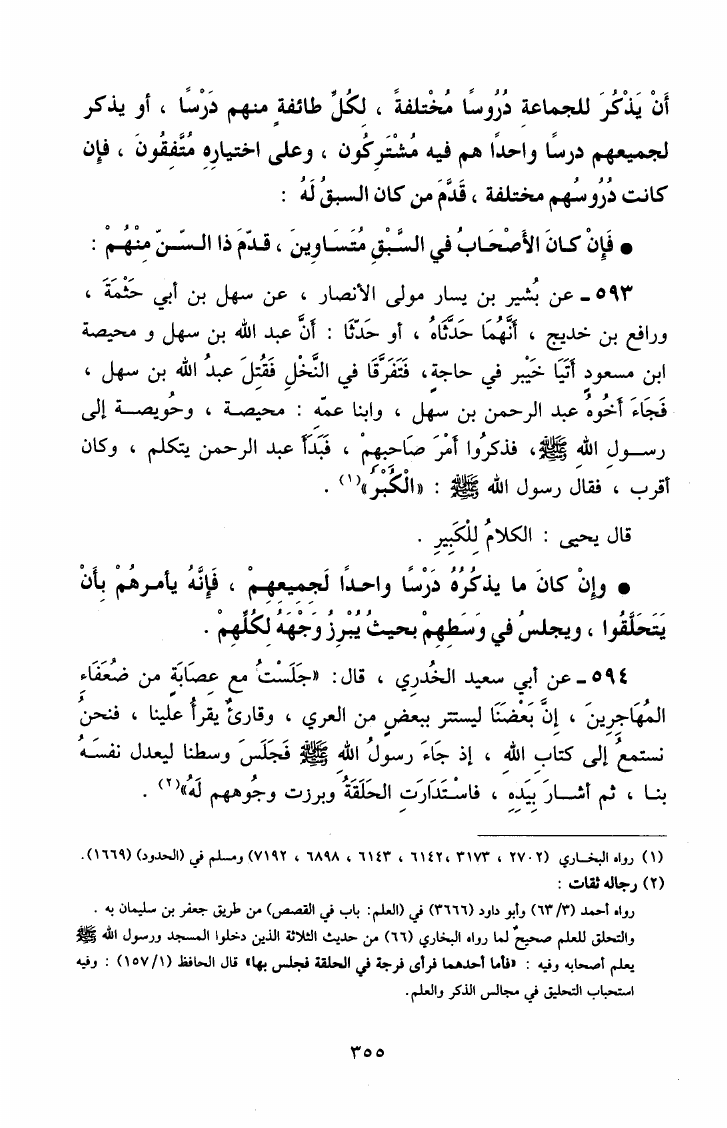 أَنْ يَذْكُرَ للجماعة دُرُوسًا مُخْتلفةً ، لكُلِّ طائفةٍ منهم دَرْسًا ، أو يذكر
لجميعهم درسًا واحدًا هم فيه مُشْتَرِكُون ، وعلى اختياره مُتَّفِقُونَ ، فإن
كانت دُرُوسُهم مختلفة ، قَدَّمَ من كان السبقُ لَهُ :
● فَإِنْ كـانَ الأَصْحَـابُ في السَّبْقِ مُتَسَـاوِينَ ، قـدّمَ ذا السّـنِّ مِنْهُـمْ :
٥٩٣ ـ عن بُشير بن يسار مولى الأنصار ، عن سهل بن أبي حَثْمَةَ ،
ورافع بن خديج ، أَنَّهُمَا حَدَّثَاهُ ، أو حَدّثَا : أنَّ عبد الله بن سهل و محيصة
ابن مسعودٍ أَتَيَا خَيْبر في حاجةٍ، فَتَفَرَّقَا في النَّخْلِ فَقُتِلَ عبدُ الله بن سهل ،
فَجَاءَ أَخُوهُ عبد الرحمن بن سهل ، وابنا عمّه : محيصـة ، وحُويصـة إلى
رســولِ اللهِ ﷺ، فذكرُوا أَمْرَ صَاحِبِهِمْ ، فَبَدَأَ عبد الرحمن يتكلم ، وكان
أقرب ، فقال رسول الله ﷺ : «الْكُبْرُ»(١) .
قال يحيى : الكلامُ لِلْكَبِيرِ .
● وإِنْ كانَ ما يذكُرُهُ دَرْسًا واحـدًا لَجميعهِـمْ ، فَإِنَّهُ يأمـرهُمْ بِأنْ
يَتَحَلَّقُوا ، ويجلسُ في وَسَطِهِمْ بحيثُ يُبْرِزُ وَجْهَهُ لكُلِّهِمْ .
٥٩٤ ـ عن أبي سعيد الخُدري ، قال: «جَلَسْتُ مع عصَابَةٍ من ضُعَفَاءِ
المُهَاجِرِينَ ، إِنَّ بَعْضَنَا ليستتر ببعضٍ من العري ، وقارئٌ يقرأُ علينا ، فنحنُ
نستمعُ إلى كتابِ اللهِ ، إذ جَاءَ رسولُ اللهِ ﷺ فَجَلَسَ وسطنا ليعدل نفسَـهُ
بنـا ، ثم أشــارَ بِيَدِهِ ، فاسْـتَدَارَتِ الحَلَقَةُ وبرزت وجُوههم لَهُ»(٢) .
(١) رواه البخـاري (٢٧٠٢ ، ٣١٧٣ ،٦١٤٢ ، ٦١٤٣ ، ٦٨٩٨ ، ٧١٩٢) ومسلم في (الحدود) (١٦٦٩).
(٢) رجاله ثقات :
رواه أحمد (٦٣/٣) وأبو داود (٣٦٦٦) في (العلم: باب في القصص) من طريق جعفر بن سليمان به .
والتحلق للعلم صحيحٌ لما رواه البخاري (٦٦) من حديث الثلاثة الذين دخلوا المسجد ورسول الله ﷺ
يعلم أصحابه وفيه : «فأما أحدهما فرأى فرجة في الحلقة فجلس بها» قال الحافظ (١٥٧/١) : وفيه
استحباب التحليق في مجالس الذكر والعلم.
٣٥٥